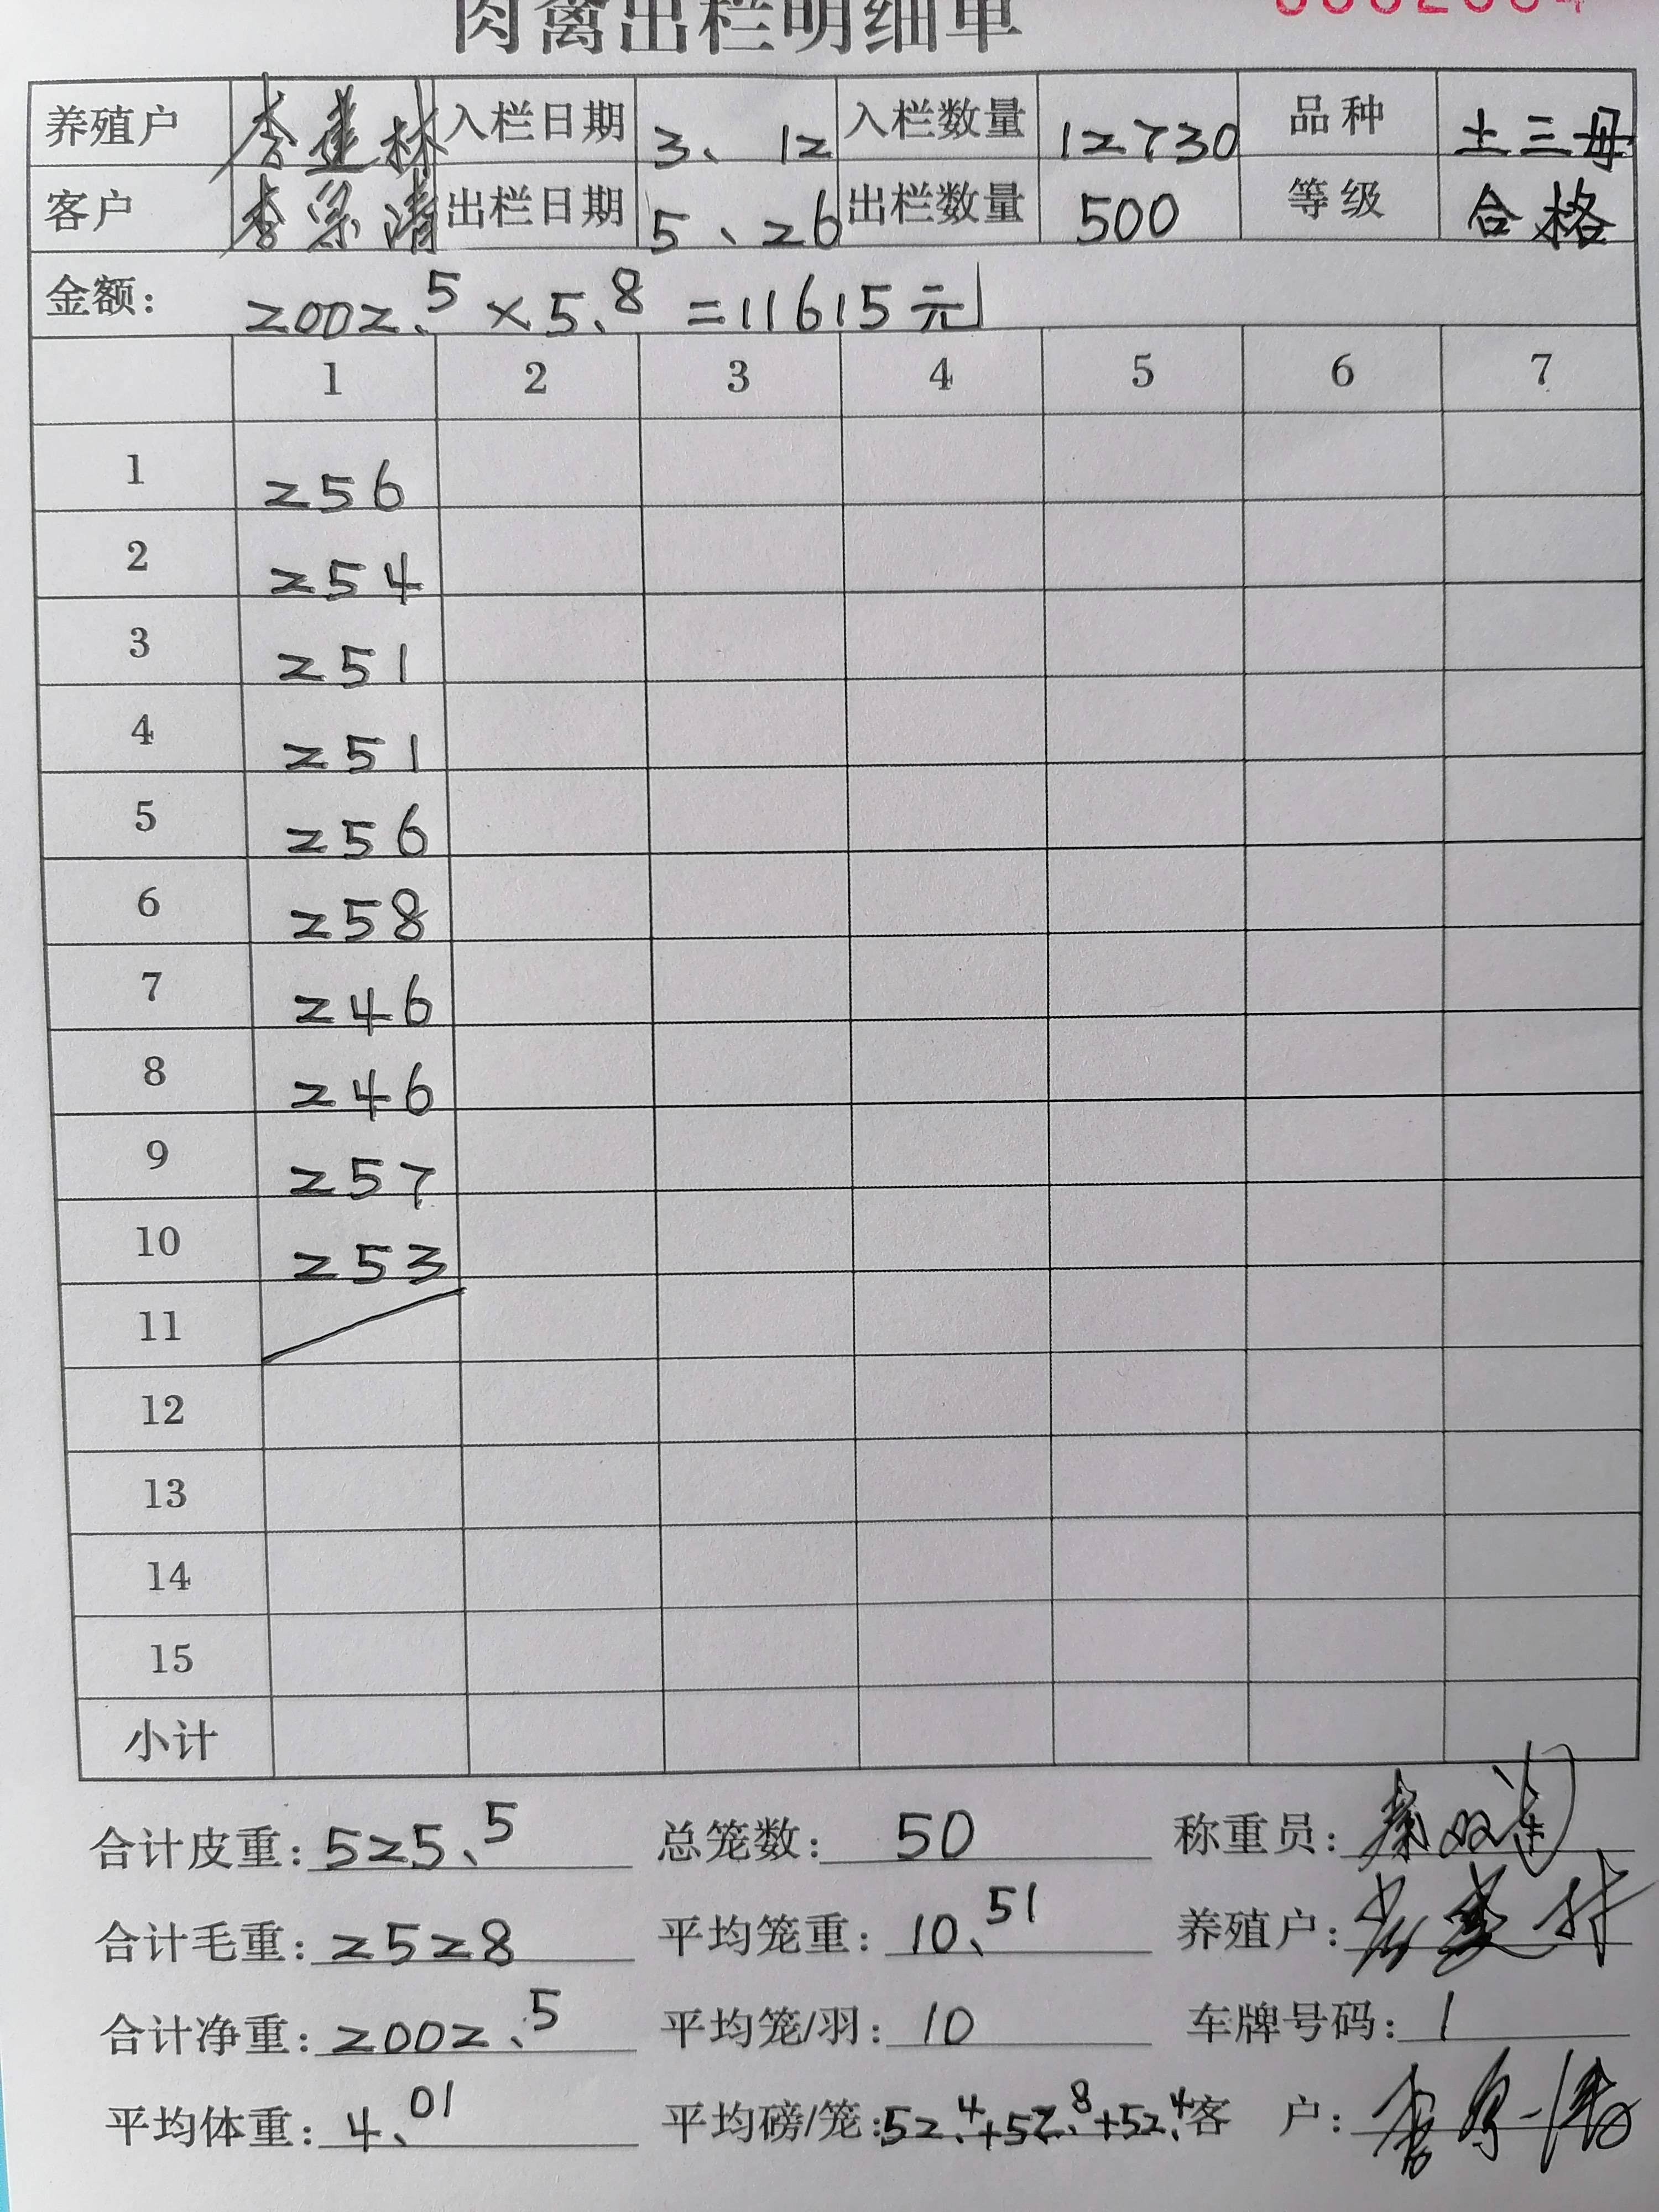 肉禽出栏明细单
养殖户 李建林 入栏日期 3、12 入栏数量 12730 品种 土三母
客户 李宗清 出栏日期 5、26 出栏数量 500 等级 合格
金额: 2002.5×5.8=11615元
1 2 3 4 5 6 7
1 256
2 254
3 251
4 251
5 256
6 258
7 246
8 246
9 257
10 253
11
12
13
14
15
小计
合计皮重: 525.5 总笼数: 50 称重员:
合计毛重: 2528 平均笼重: 10.51 养殖户:
合计净重: 2002.5 平均笼/羽: 10 车牌号码: 1
平均体重: 4.01 平均磅/笼: 52.4+52.8+52.4 客 户: